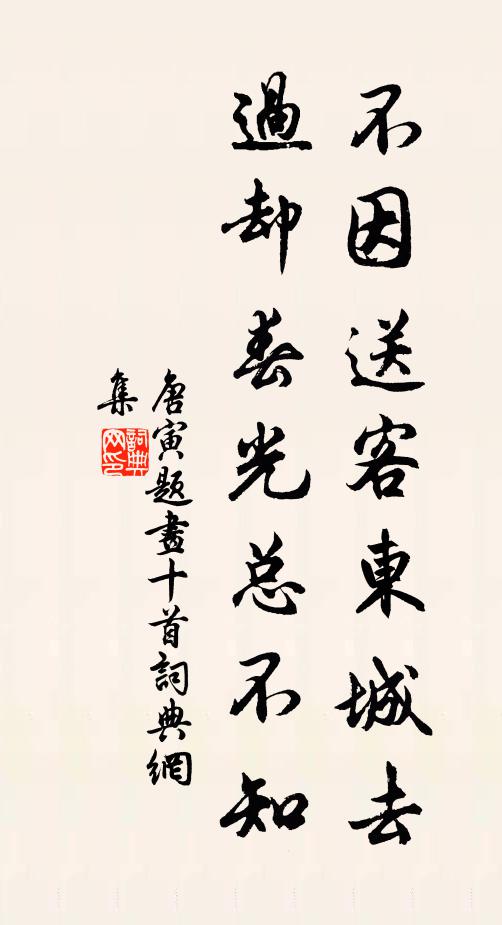 不因送客東城去
過却春光总不知
唐寅题畫十首詞典網
集
詞典網印